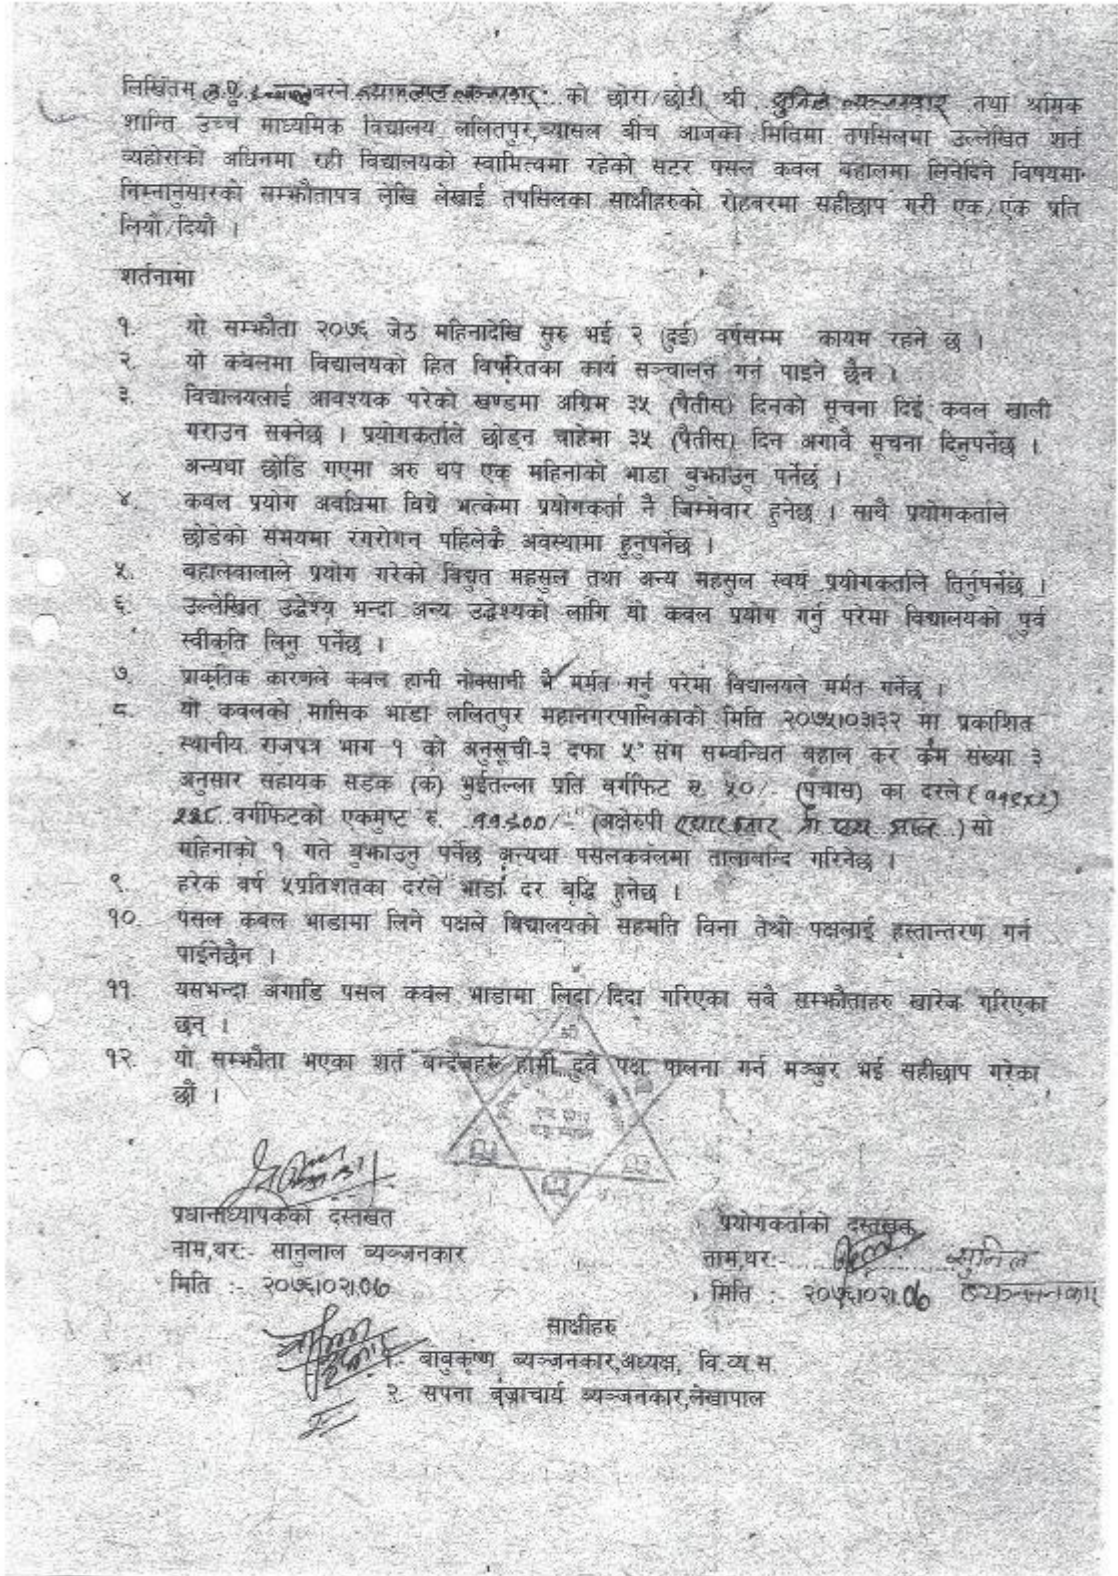 लिखितम् बस्ने को छोरा/छोरी श्री सुनिल व्यञ्जनकार तथा श्रमिक
शान्ति उच्च माध्यमिक विद्यालय ललितपुर,च्यासल बीच आजका मितिमा तपसिलमा उल्लेखित शर्त
व्यहोराको अधिनमा रही विद्यालयको स्वामित्वमा रहेको सटर पसल कवल बहालमा लिनेदिने विषयमा
निम्नानुसारको सम्झौतापत्र लेखि लेखाई तपसिलका साक्षीहरुको रोहबरमा सहीछाप गरी एक/एक प्रति
लियौं/दियौं ।
शर्तनामा
१. यो सम्झौता २०७६ जेठ महिनादेखि सुरु भई २ (दुई) वर्षसम्म कायम रहने छ ।
२. यो कवलमा विद्यालयको हित विपरितका कार्य सञ्चालन गर्न पाइने छैन ।
३. विद्यालयलाई आवश्यक परेको खण्डमा अग्रिम ३५ (पैतीस) दिनको सूचना दिई कवल खाली
गराउन सक्नेछ । प्रयोगकर्ताले छोड्न चाहेमा ३५ (पैतीस) दिन अगावै सूचना दिनुपर्नेछ ।
अन्यथा छोडि गएमा अरु थप एक महिनाको भाडा बुझाउनु पर्नेछ ।
४. कवल प्रयोग अवधिमा विग्रे भत्केमा प्रयोगकर्ता नै जिम्मेवार हुनेछ । साथै प्रयोगकर्ताले
छोडेको समयमा रंगरोगन पहिलेकै अवस्थामा हुनुपर्नेछ ।
५. बहालवालाले प्रयोग गरेको विद्युत महसुल तथा अन्य महसुल स्वयं प्रयोगकर्ताले तिर्नुपर्नेछ ।
६. उल्लेखित उद्धेश्य भन्दा अन्य उद्धेश्यको लागि यो कवल प्रयोग गर्नु परेमा विद्यालयको पुर्व
स्वीकृति लिनु पर्नेछ ।
७. प्राकृतिक कारणले कवल हानी नोक्सानी भै मर्मत गर्नु परेमा विद्यालयले मर्मत गर्नेछ ।
८. यो कवलको मासिक भाडा ललितपुर महानगरपालिकाको मिति २०७५।०३।३२ मा प्रकाशित
स्थानीय राजपत्र भाग १ को अनुसूची-३ दफा ५ संग सम्वन्धित बहाल कर क्रम संख्या ३
अनुसार सहायक सडक (क) भुईतल्ला प्रति वर्गफिट रु. ५०/- (पचास) का दरले (११९x२)
२३८ वर्गफिटको एकमुष्ट रु. ११९००/- (अक्षेरुपी एघार हजार नौ सय मात्र) सो
महिनाको १ गते बुझाउनु पर्नेछ अन्यथा पसलकवलमा तालाबन्दि गरिनेछ ।
९. हरेक वर्ष ५प्रतिशतका दरले भाडा दर बृद्धि हुनेछ ।
१०. पसल कवल भाडामा लिने पक्षले विद्यालयको सहमति विना तेश्रो पक्षलाई हस्तान्तरण गर्न
पाईनेछैन ।
११. यसभन्दा अगाडि पसल कवल भाडामा लिदा/दिदा गरिएका सबै सम्झौताहरु खारेज गरिएका
छन् ।
१२. यो सम्झौता भएका शर्त बन्देजहरु हामी दुवै पक्ष पालना गर्न मञ्जुर भई सहीछाप गरेका
छौं ।
प्रधानाध्यापकको दस्तखत
नाम,थर:- सानुलाल व्यञ्जनकार
मिति :- २०७६।०२।०७
प्रयोगकर्ताको दस्तखत
नाम,थर:- सुनिल
मिति :- २०७६।०२।०७ व्यञ्जनकार
साक्षीहरु
१.- बाबुकृष्ण ब्यञ्जनकार,अध्यक्ष, वि.व्य.स.
२. सपना बज्राचार्य ब्यञ्जनकार,लेखापाल